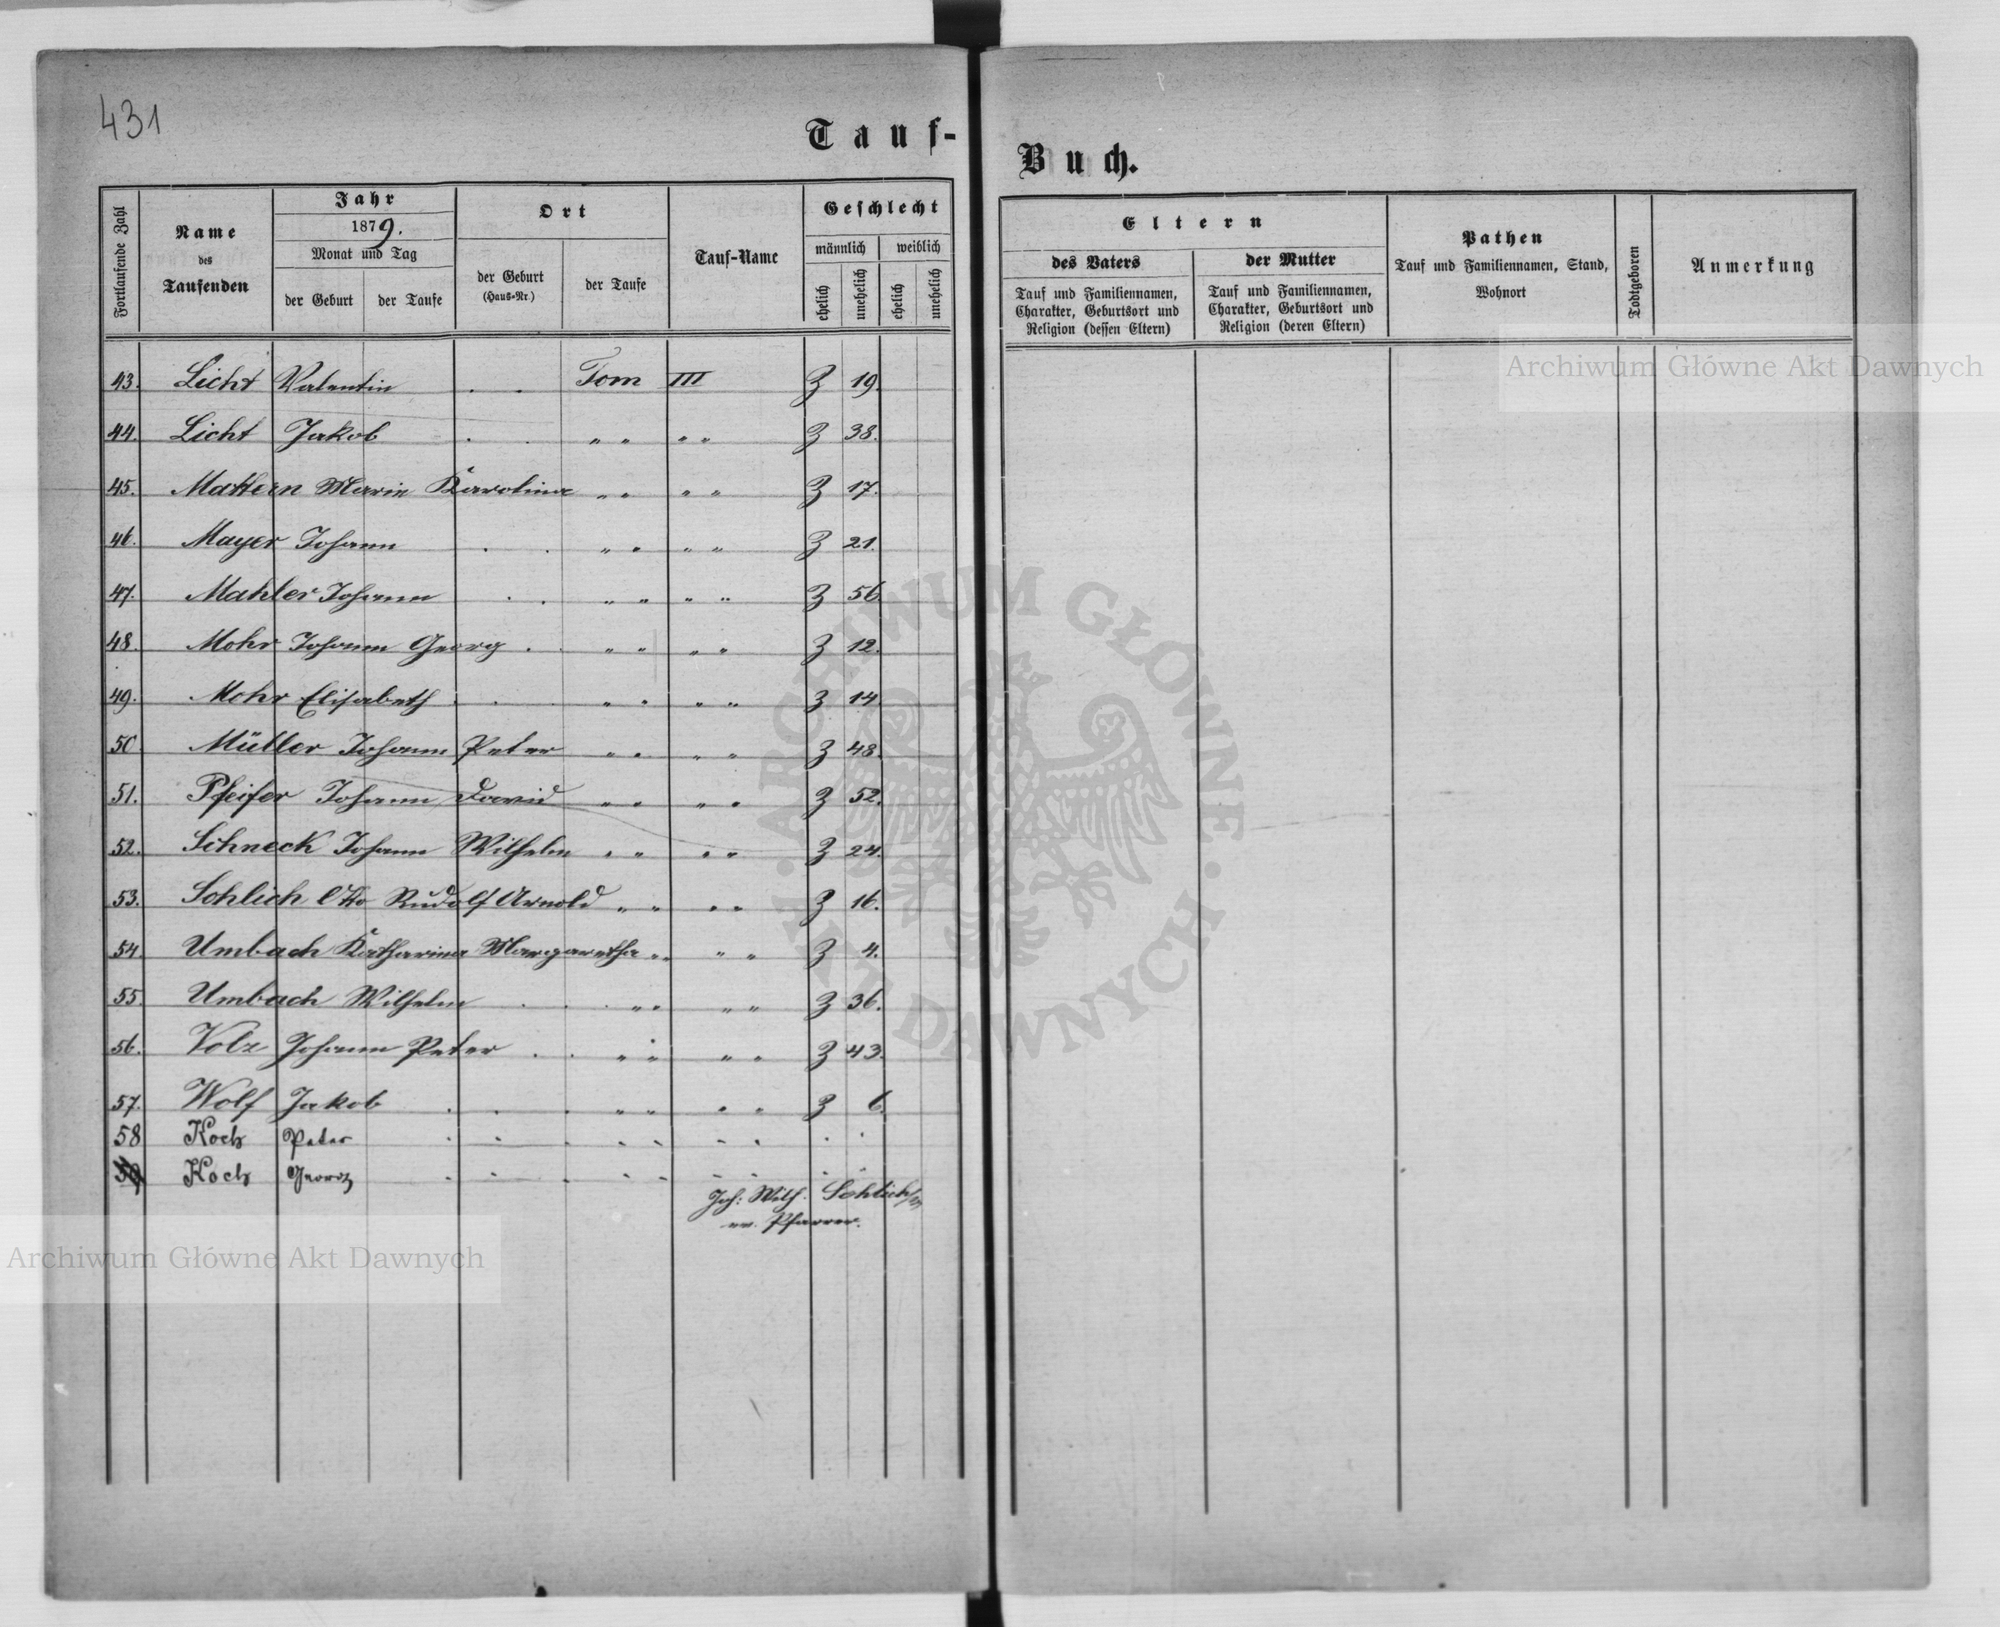 431
Tauf-
Buch.
Fortlaufende Zahl
Name
des
Taufenden
Jahr
1879.
Monat und Tag
der Geburt
der Taufe
Ort
der Geburt
(Haus-Nr.)
der Taufe
Tauf-Name
Geschlecht
männlich
weiblich
ehelich
unehelich
ehelich
unehelich
Eltern
des Vaters
Tauf und Familiennamen,
Charakter, Geburtsort und
Religion (dessen Eltern)
der Mutter
Tauf und Familiennamen,
Charakter, Geburtsort und
Religion (deren Eltern)
Pathen
Tauf und Familiennamen, Stand,
Wohnort
Todtgeboren
Anmerkung
43. Licht Valentin . . Tom III Z 19.
44. Licht Jakob . . " " " " Z 38.
45. Mattern Marie Karolina " " " " Z 17.
46. Mayer Johann . . " " " " Z 21.
47. Mahler Johann . . " " " " Z 56.
48. Mohr Johann Georg . . " " " " Z 12.
49. Mohr Elisabeth . . . " " " " Z 14.
50 Müller Johann Peter " " " " Z 48.
51. Pfeifer Johann David " " " " Z 52.
52. Schneck Johann Wilhelm " " " " Z 24.
53. Schlich Otto Rudolf Arnold " " " " Z 16.
54. Umbach Katharina Margaretha " " " " Z 4.
55. Umbach Wilhelm . . . " " " " Z 36.
56. Volz Johann Peter . . " " " " Z 43.
57. Wolf Jakob . . . " " " " Z 6.
58 Koch Peter . . . " " " " . .
59 Koch Georg . . . " " " " . .
Joh: Wilh. Schlich
ev. Pfarrer.
Archiwum Główne Akt Dawnych
Archiwum Główne Akt Dawnych
· ARCHIWUM GŁÓWNE · AKT DAWNYCH